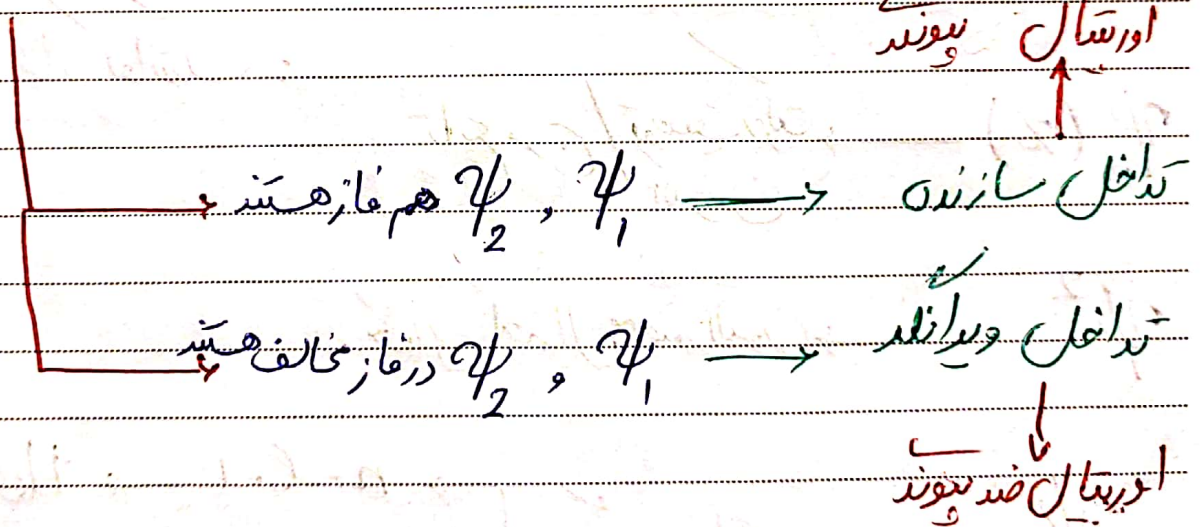 اوربیتال پیوندی
ψ₁ و ψ₂ هم فاز هستند → تداخل سازنده
ψ₁ و ψ₂ در فاز مخالف هستند → تداخل ویرانگر
اوربیتال ضد پیوندی